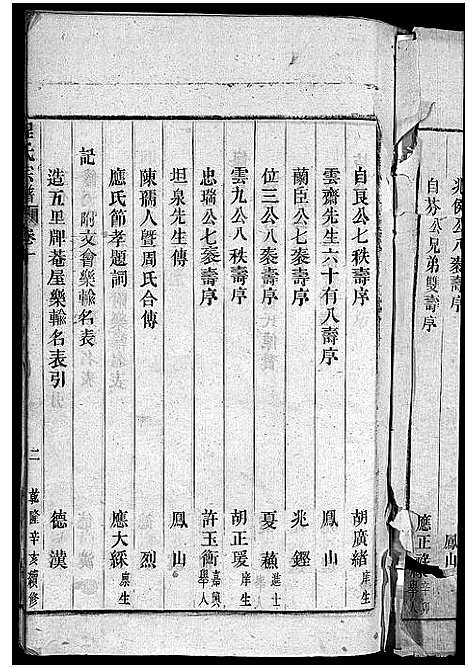 兆保公八袠壽序 鳳山
自芬公兄弟雙壽序
自良公七秩壽序 胡廣緒 庠生
雲齋先生六十有八壽序 鳳山
蘭臣公七袠壽序 兆鏗
位三公八袠壽序 夏燕 進士
雲九公八秩壽序 胡正瑗 庠生
忠瑞公七袠壽序 許玉衡 嘉興舉人
坦泉先生傳 鳳山
陳孺人暨周氏合傳 烈
應氏節孝題詞 應大綵 廩生
記
附文會樂輸名表
造五里牌菴屋樂輸名表引 德漢
程氏宗譜 卷一 二 乾隆辛亥續修